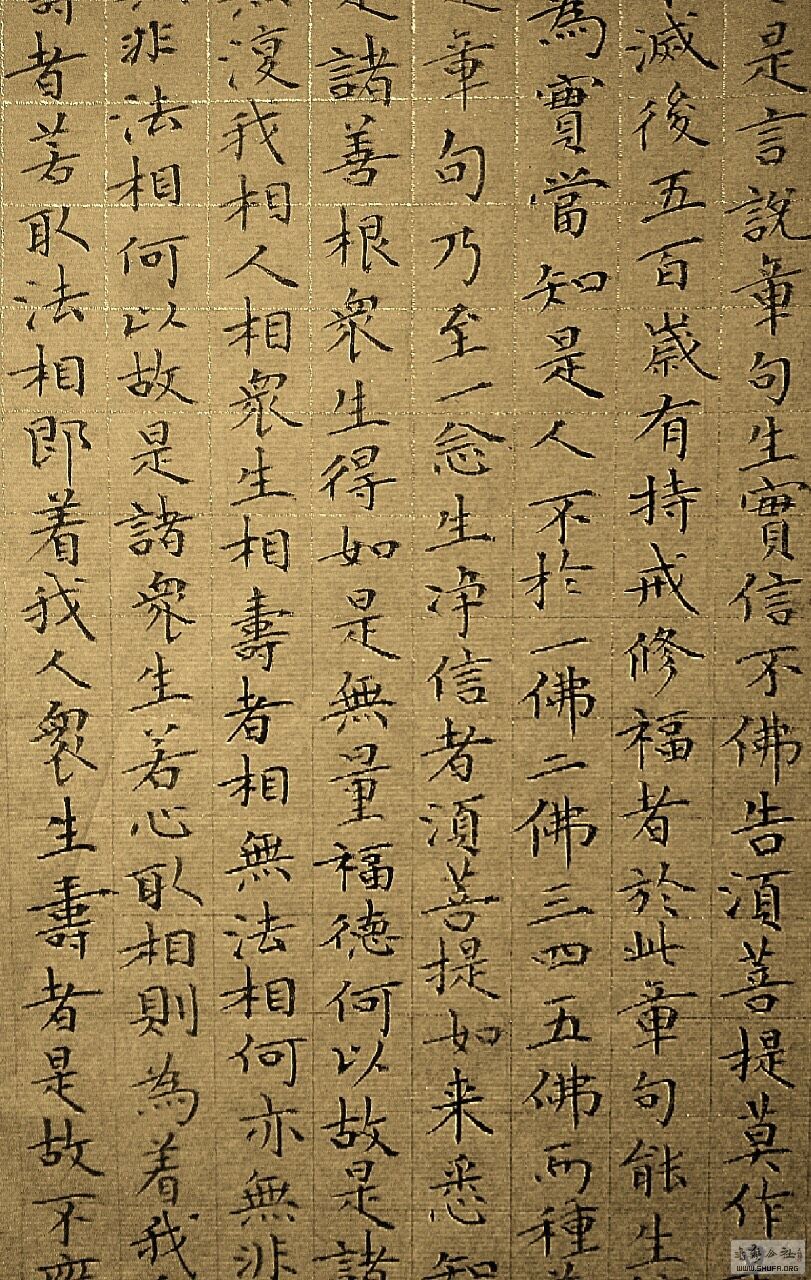 是言說章句生實信不佛告須菩提莫作
滅後五百歲有持戒修福者於此章句能生
為實當知是人不於一佛二佛三四五佛而種
是章句乃至一念生净信者須菩提如来悉知
是諸善根眾生得如是無量福德何以故是諸
無復我相人相眾生相壽者相無法相何亦無非
非法相何以故是諸眾生若心取相則為着我
壽者若取法相即着我人眾生壽者是故不應
WWW.SHUFA.ORG